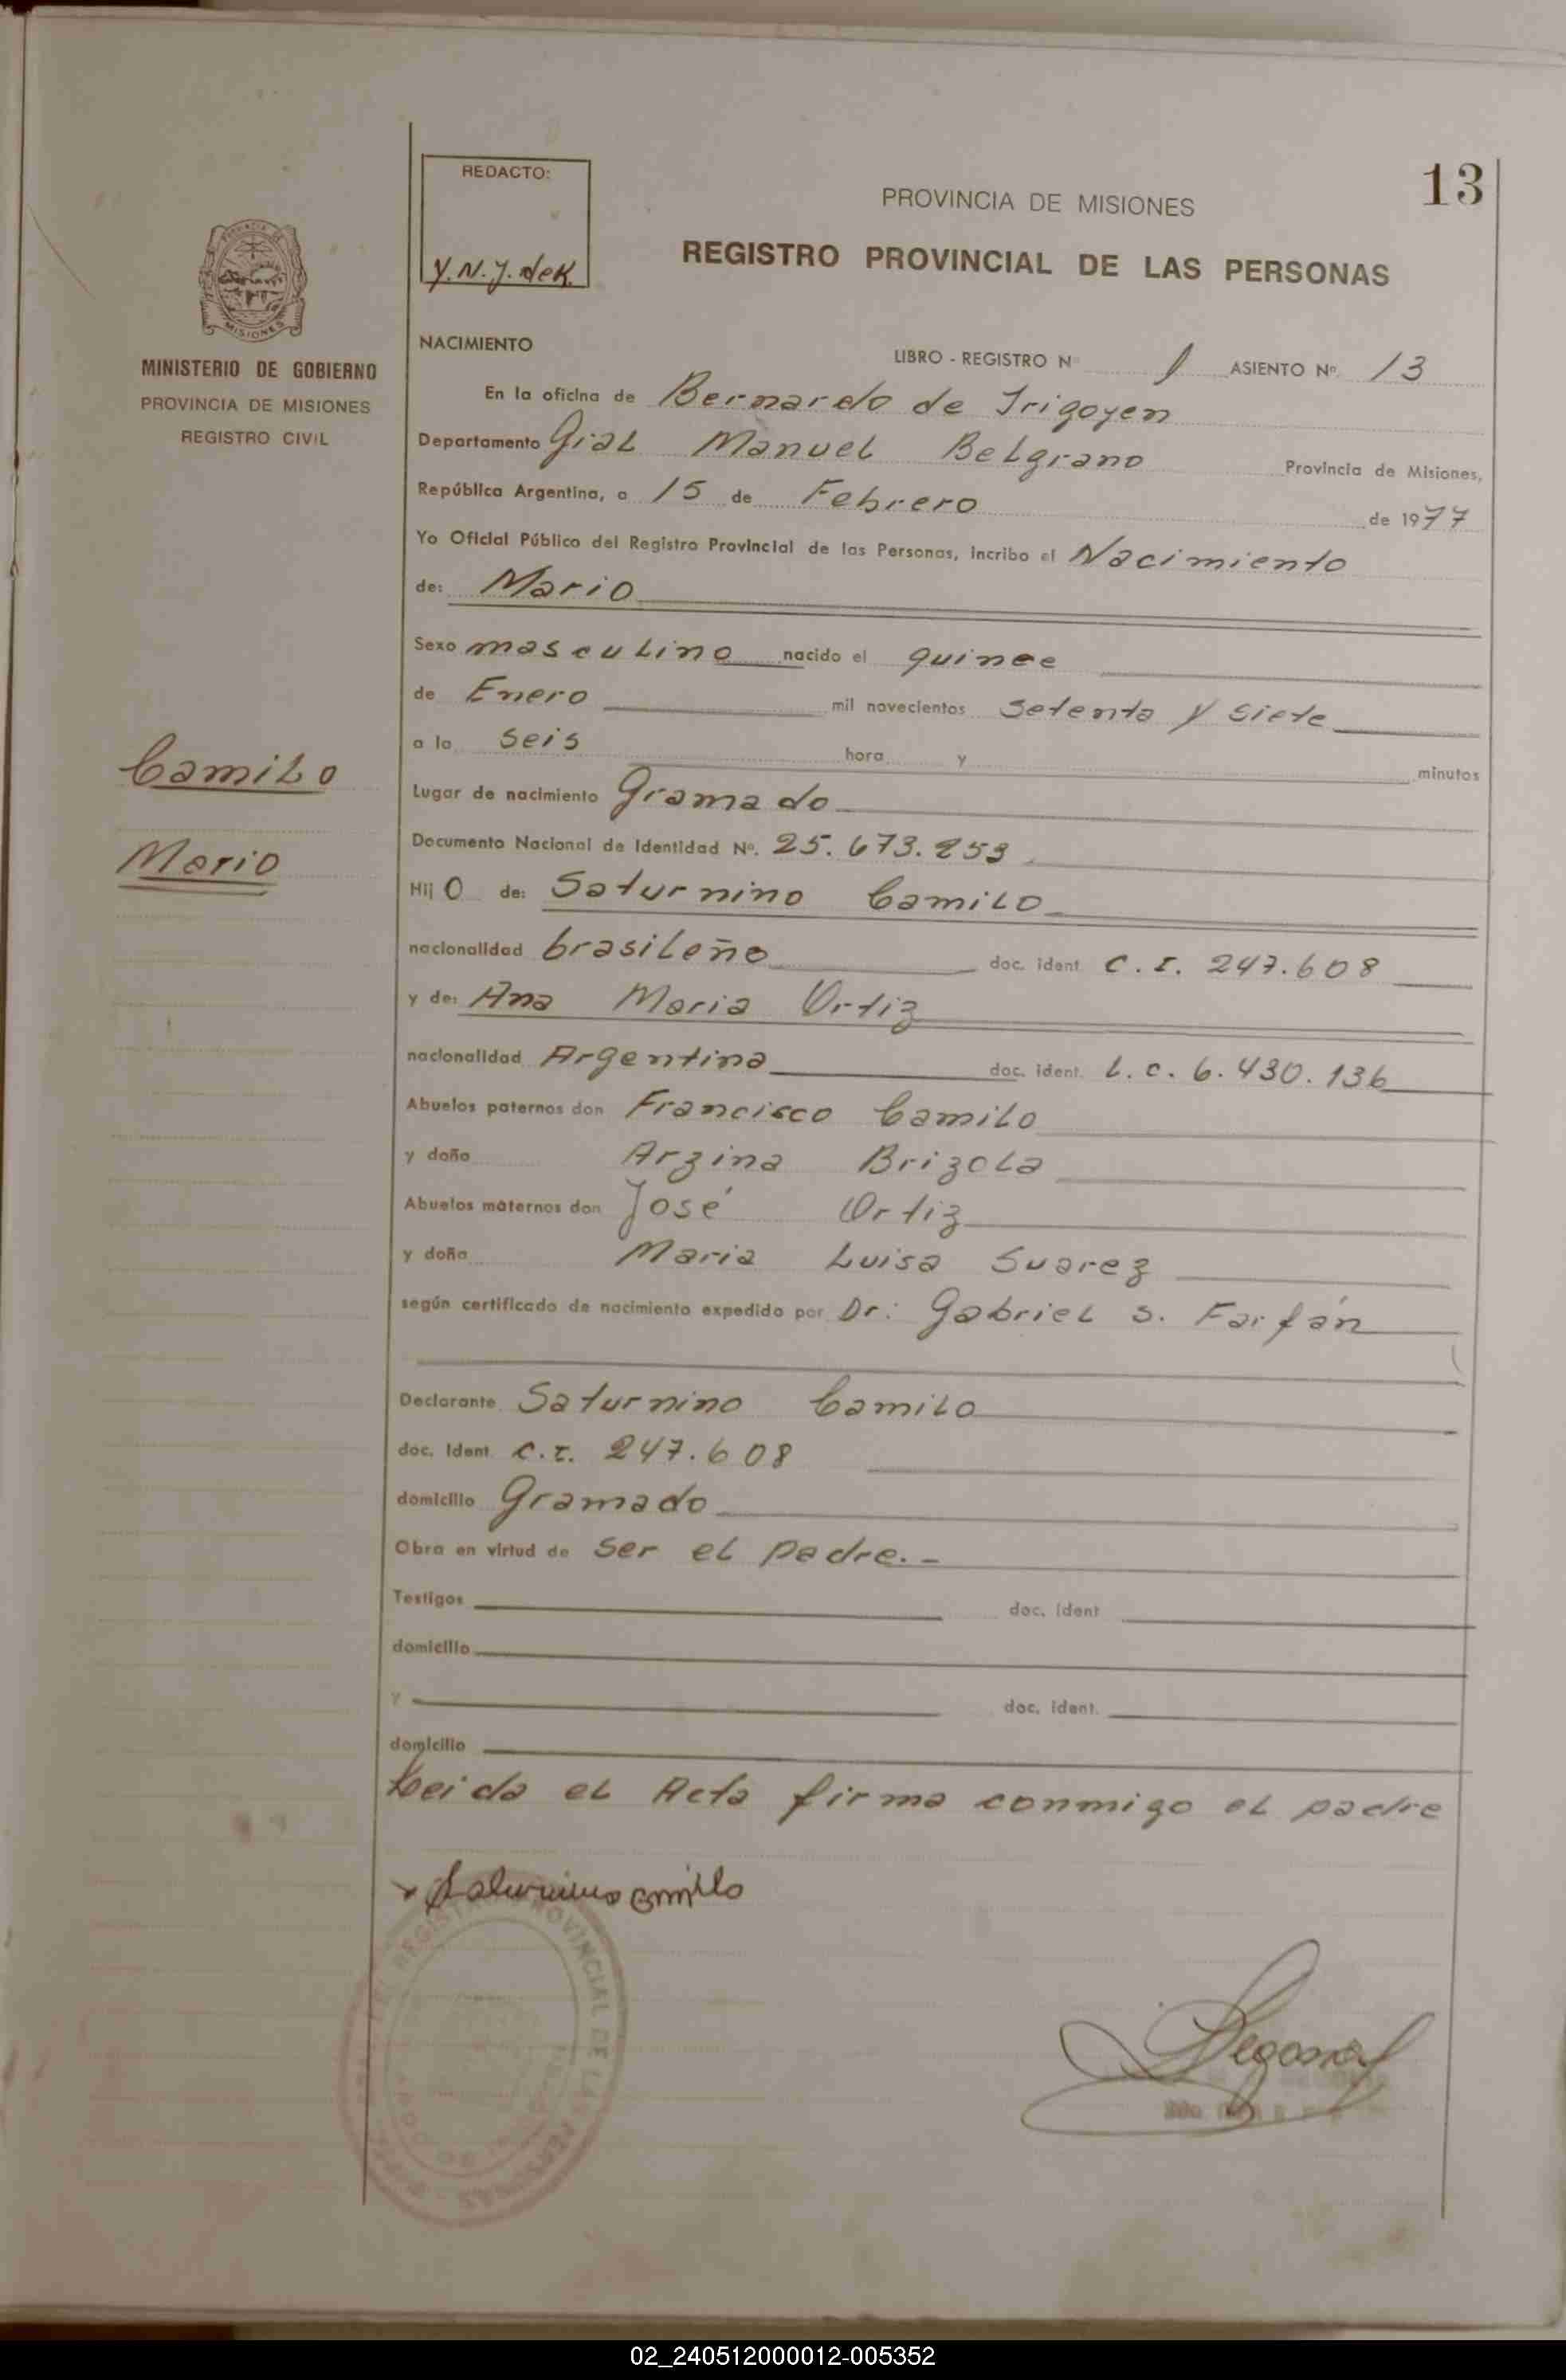 REDACTO:
Y.N.Y. deK.
13
PROVINCIA DE MISIONES
REGISTRO PROVINCIAL DE LAS PERSONAS
MISIONES
MINISTERIO DE GOBIERNO
PROVINCIA DE MISIONES
REGISTRO CIVIL
NACIMIENTO
LIBRO - REGISTRO Nº 1 ASIENTO Nº. 13
En la oficina de Bernardo de Irigoyen
Departamento Gral Manuel Belgrano Provincia de Misiones,
República Argentina, a 15 de Febrero de 1977
Yo Oficial Público del Registro Provincial de las Personas, incribo el Nacimiento
de: Mario
Sexo masculino nacido el quince
de Enero mil novecientos setenta y siete
a la seis hora y minutos
Camilo
Mario
Lugar de nacimiento Gramado
Documento Nacional de Identidad Nº. 25.673.253
Hijo de: Saturnino Camilo
nacionalidad brasileño doc. ident. C.I. 247.608
y de: Ana Maria Ortiz
nacionalidad Argentina doc. ident. L.C. 6.430.136
Abuelos paternos don Francisco Camilo
y doña Arzina Brizola
Abuelos maternos don José Ortiz
y doña Maria Luisa Suarez
según certificado de nacimiento expedido por Dr: Gabriel S. Farfán
Declarante Saturnino Camilo
doc. Ident. C.I. 247.608
domicilio Gramado
Obra en virtud de ser el padre.-
Testigos doc. ident
domicilio
y doc. ident.
domicilio
Leida el Acta firma conmigo el padre
x Saturnino Camilo
REGISTRO PROVINCIAL DE LAS PERSONAS
02_240512000012-005352